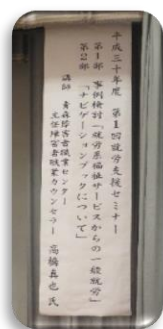 平成三十年度 第1回就労支援セミナー
第1部 事例検討「就労系福祉サービスからの一般就労」
第2部 「ナビゲーションブックについて」
講師 青森障害者職業センター
主任障害者職業カウンセラー 高橋真也 氏